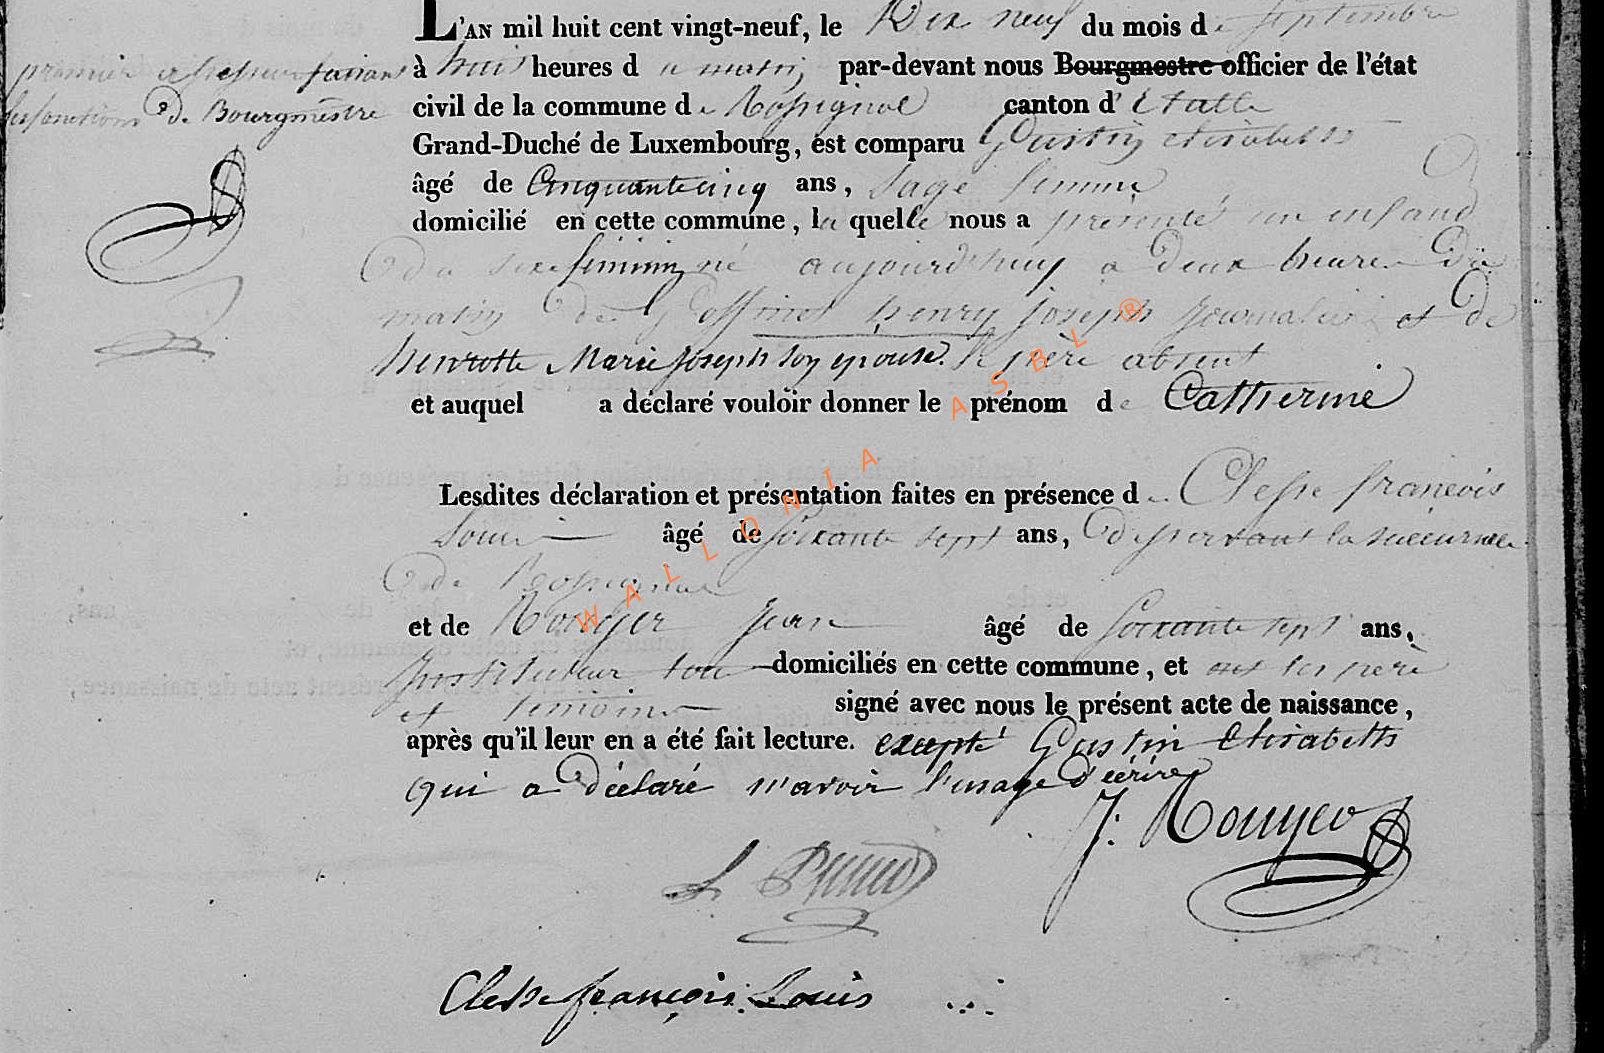 L'AN mil huit cent vingt-neuf, le Dix neuf du mois de septembre
premier assesseur faisant
à huit heures du matin, par-devant nous Bourgmestre officier de l'état
les fonctions de Bourgmestre
civil de la commune de Rossignol canton d'Etalle
Grand-Duché de Luxembourg, est comparu Gustin elisabette
âgé de Cinquante cinq ans, Sage femme
domicilié en cette commune, la quelle nous a présenté un enfand
du sexe féminin né aujourd'huy a deux heures du
matin de Goffinet henry joseph journalier et de
henrotte Marie joseph son epouse. le père absent
et auquel a déclaré vouloir donner le prénom de Catherine
Lesdites déclaration et présentation faites en présence de Clesse francois
Louis âgé de soixante sept ans, desservant la succursale
de Rossignol
et de Rouyer jean âgé de soixante sept ans,
instituteur tou domiciliés en cette commune, et ont les père
et temoins signé avec nous le présent acte de naissance,
après qu'il leur en a été fait lecture. excepté Gustin elisabette
qui a déclaré n'avoir l'usage d'écrire
J. Rouyer
Clesse françois Louis
WALLONIA ASBL ®